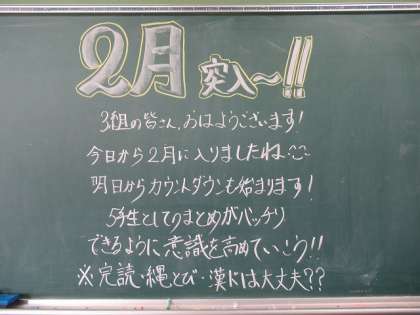 2月突入〜!!
3組の皆さん、おはようございます!
今日から2月に入りましたね
明日からカウントダウンも始まります!
5年生としてのまとめがバッチリ
できるように意識を高めていこう!!
※完読・縄とび・漢ドは大丈夫??